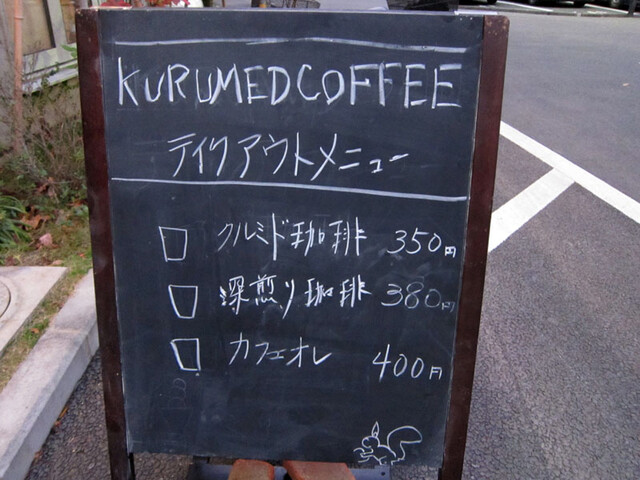 KURUMED COFFEE
テイクアウトメニュー
クルミド珈琲 350円
深煎り珈琲 380円
カフェオレ 400円